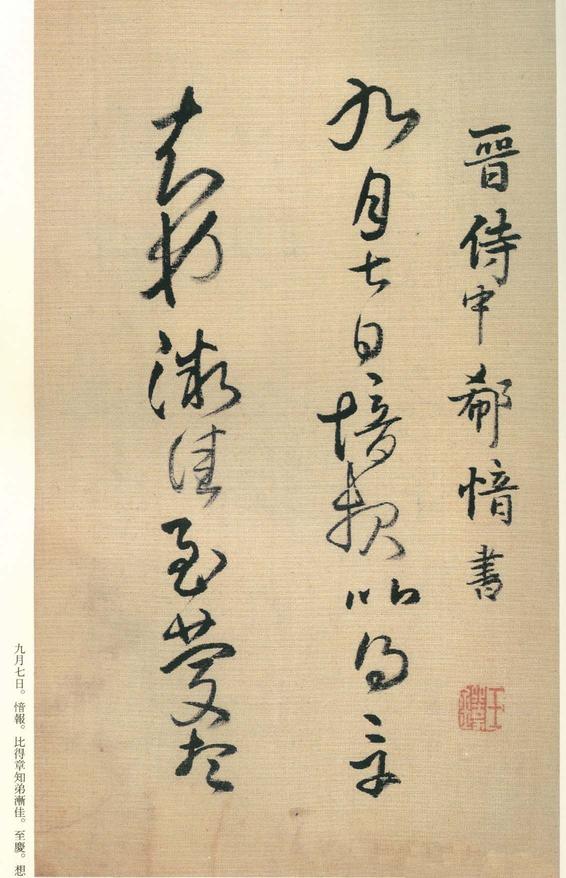 晉侍中郗愔書
九月七日愔報比得章
知弟漸佳至慶想
王鐸
九月七日。愔報。比得章知弟漸佳。至慶。想